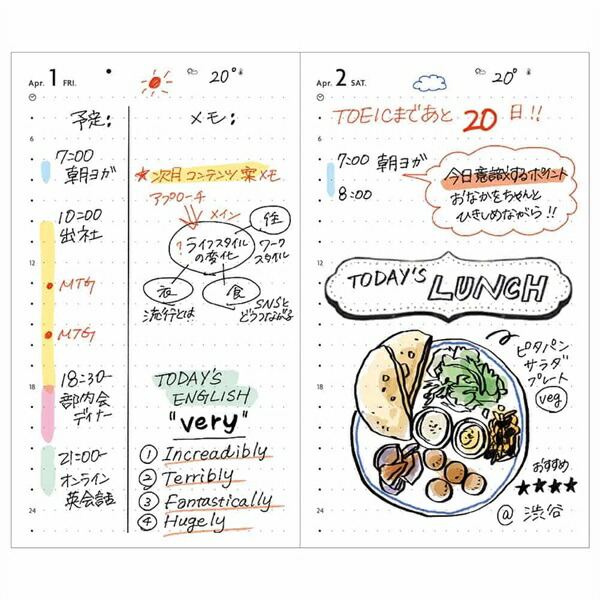 Apr. 1 FRI.
20°
予定:
メモ:
6
7:00
朝ヨガ
10:00
出社
12
MTG
MTG
18
18:30-
部内会
ディナー
21:00-
オンライン
英会話
24
★次月コンテンツ案メモ
アプローチ
メイン
?ライフスタイル
の変化
住
ワーク
スタイル
衣
流行とは
食
SNSと
どうつながる
TODAY'S
ENGLISH
"very"
① Increadibly
② Terribly
③ Fantastically
④ Hugely
Apr. 2 SAT.
20°
TOEICまであと 20 日!!
6
7:00 朝ヨガ
8:00
今日意識するポイント
おなかをちゃんと
ひきしめながら!!
12
TODAY'S LUNCH
ピタパン
サラダ
プレート
veg
18
おすすめ
★★★★
@ 渋谷
24